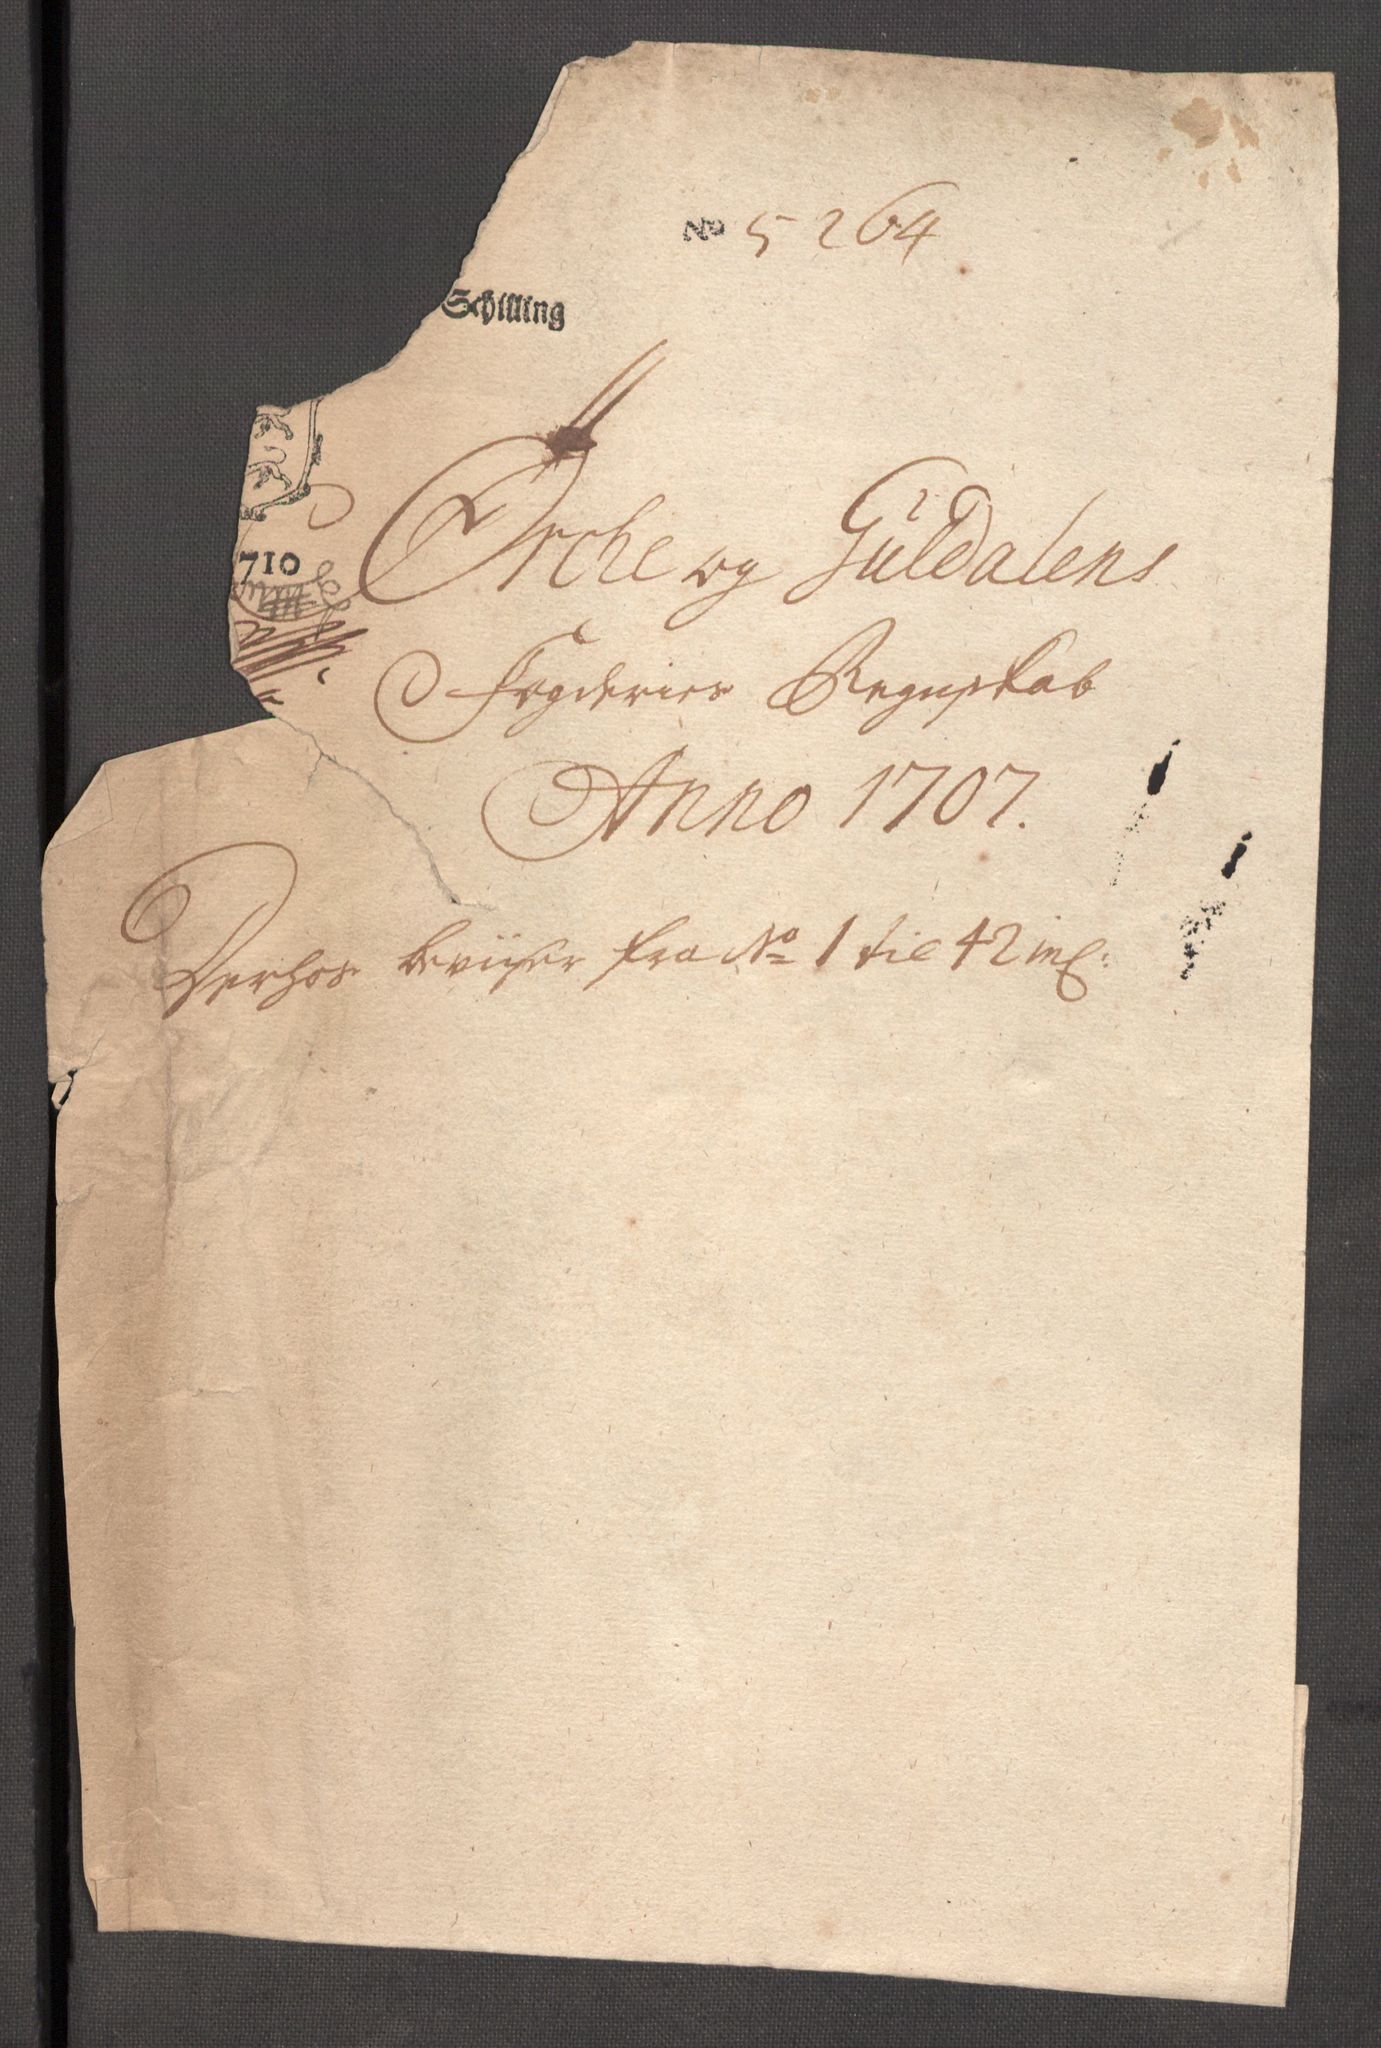 No 5264
Schilling
710
Orche og Gŭldalens
Fogderies Regnskab
Anno 1707.
Derhos beviiser fra No 1 til 42 incl: